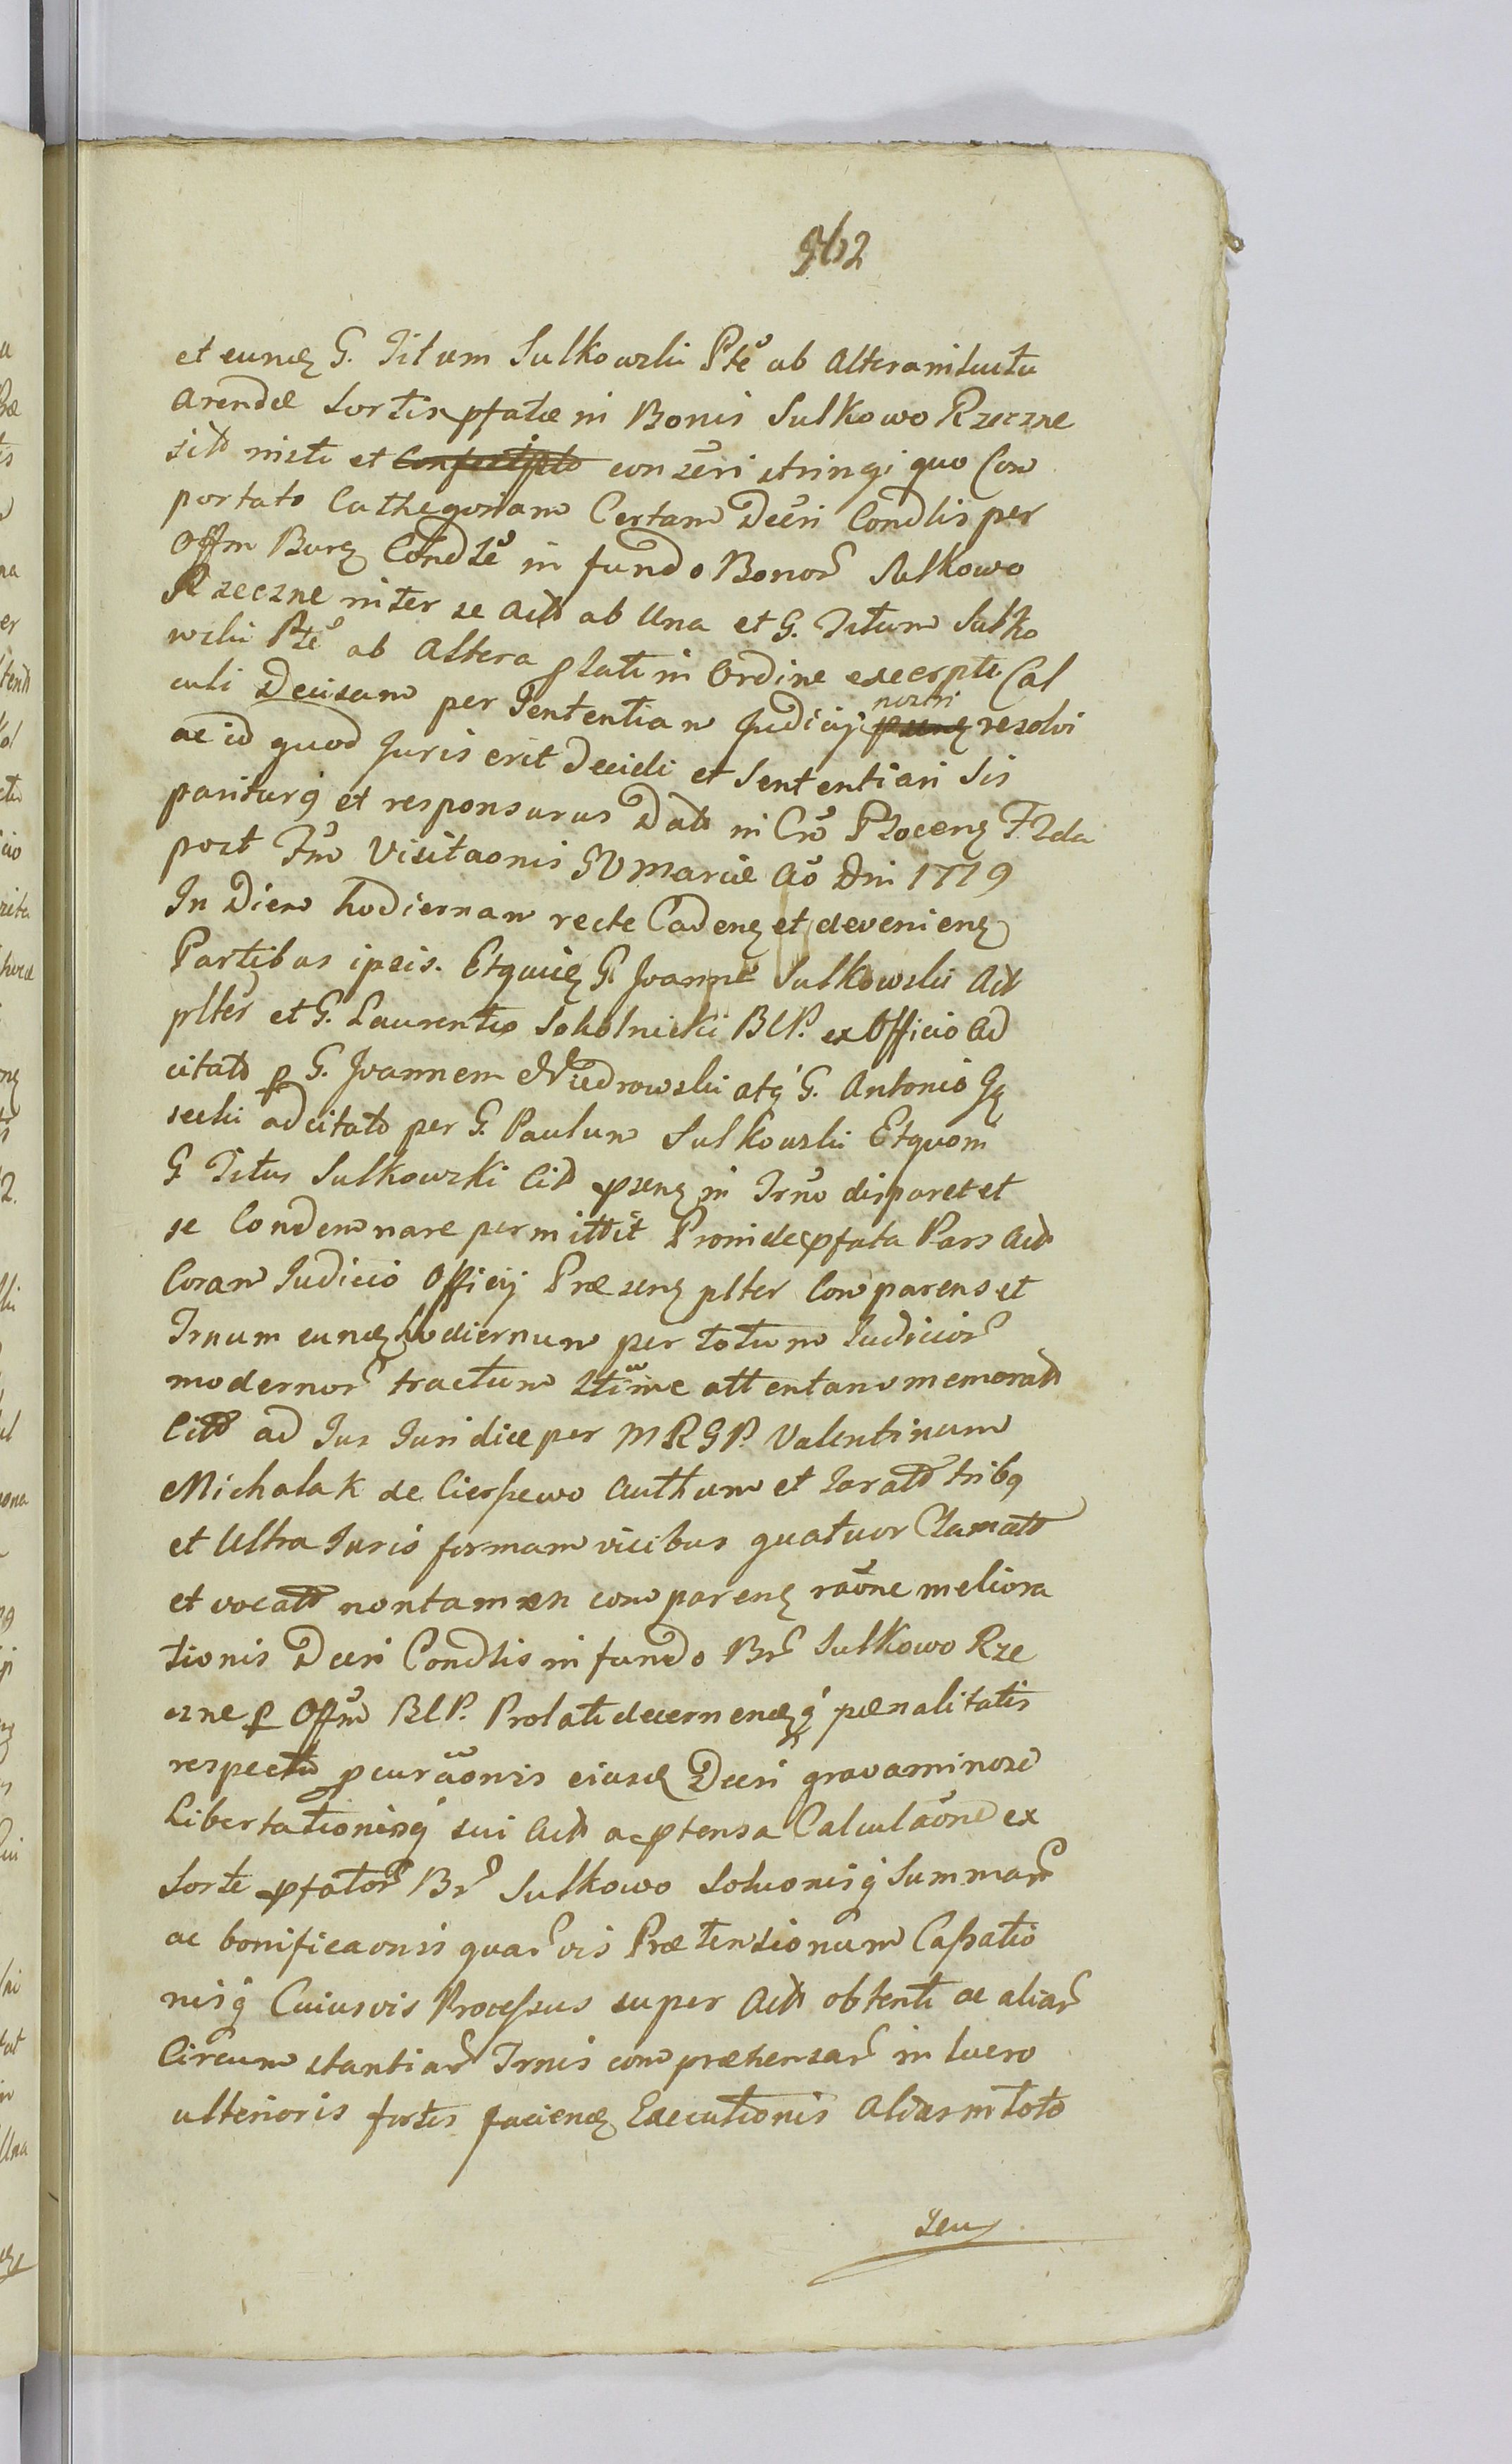 962
et eund G. Titum Sulkowski Pte ab Altera intuitu
arendæ Sortis pfatæ in Bonis Sulkowo Rzeczne
sit misti et conseri stringi quo Com
portato Cathegoriam Certam Decri Condlis per
Offm Burg Condle in fundo Bonor Sulkowo
Rzeczne inter se Act ab Una et G. Titum Sulko
wski Pte ab Altera plati in Ordine excerpti Cal
culi Decisam per Sententiam Judicij nostri resolvi
ac id quod Juris erit Decidi et Sententiari Sis
pariturq et responsurus Dat in Cro Plocen F2da
post Fm Visitaonis BVMariæ Ao Dni 1779
In Diem hodiernam recte Caden et devenien
Partibus ipsis. Etquid G. Joanne Sulkowski Act
plter et G. Laurentio Sokolnicki BCP. ex Officio Ad
citato p G. Joannem Niedrowski atq G. Antonio
secki adcitato per G. Paulum Sulkowski Etquom
G Titus Sulkowski Cit psens in Trno disparet et
se Condemnare permittit Proinde pfata Pars Act
Coram Judicio Officij Præsens plter Comparens et
Trnum eund hodiernum per totum Judicior
modernor tractum ltime attentans memorat
Citt ad Jus Juridice per MRGP. Valentinum
Michalak de Cierpewo Authum et Jurat tribq
et Ultra Juris formam vicibus quatuor Clamatt
et vocatt non tamen comparens raone meliora
tionis Decri Condlis in fundo Br Sulkowo Rze
czne p Offm BCP. Prolati decernendq pœnalitatis
respectu pcuraonis eiusd Decri gravaminose
Libertationisq sui Act a ptensa Calculaone ex
Sorte pfator Br Sulkowo Soluonisq Summar
ac bonificaonis quarvis Prætensionum Cassatio
nisq Cuiusvis Processus super Act obtenti ac aliar
Circumstantiar Trnis compræhensar in lucro
ulterioris fortis faciend Executionis Alias in toto
Seu